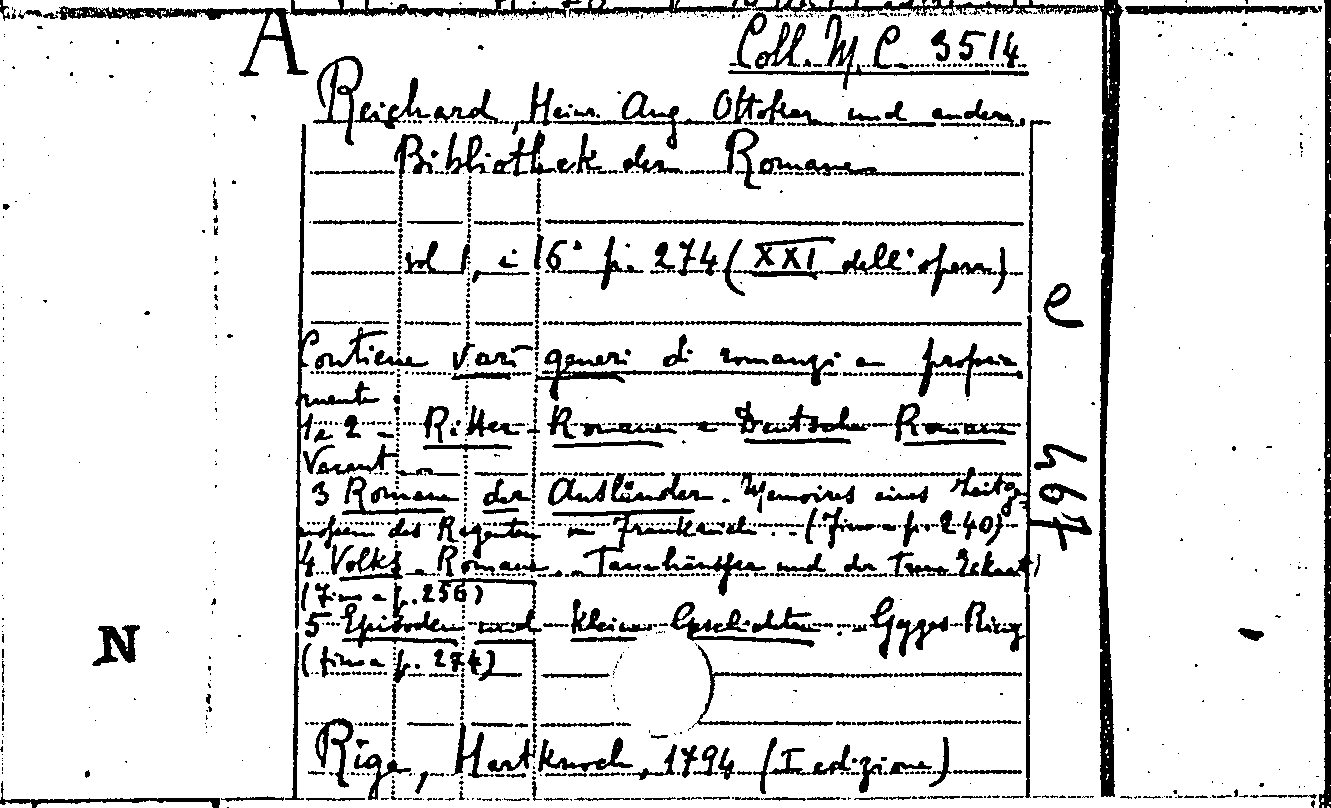 A
Coll. M. C. 3514
Reichard, Heinr. Aug. Ottokar und andern.
Bibliothek der Romane
vol 1, i 16° p. 274 (XXI dell'opera)
Contiene vari generi di romanzi e propria
mente:
1 e 2 - Ritter-Romane e Deutsche Romane
Vacant
3 Romane der Ausländer. Memoires eines Zeitge-
nossen des Regenten in Frankreich .. (fino a p. 240)
4 Volks-Romane. Tannhäuser und der Treue Eckart
(fino a p. 256)
5 Episoden und kleine Geschichten. Gyges Ring
(fino a p. 274)
Riga, Hartknoch, 1794 (I edizione)
N